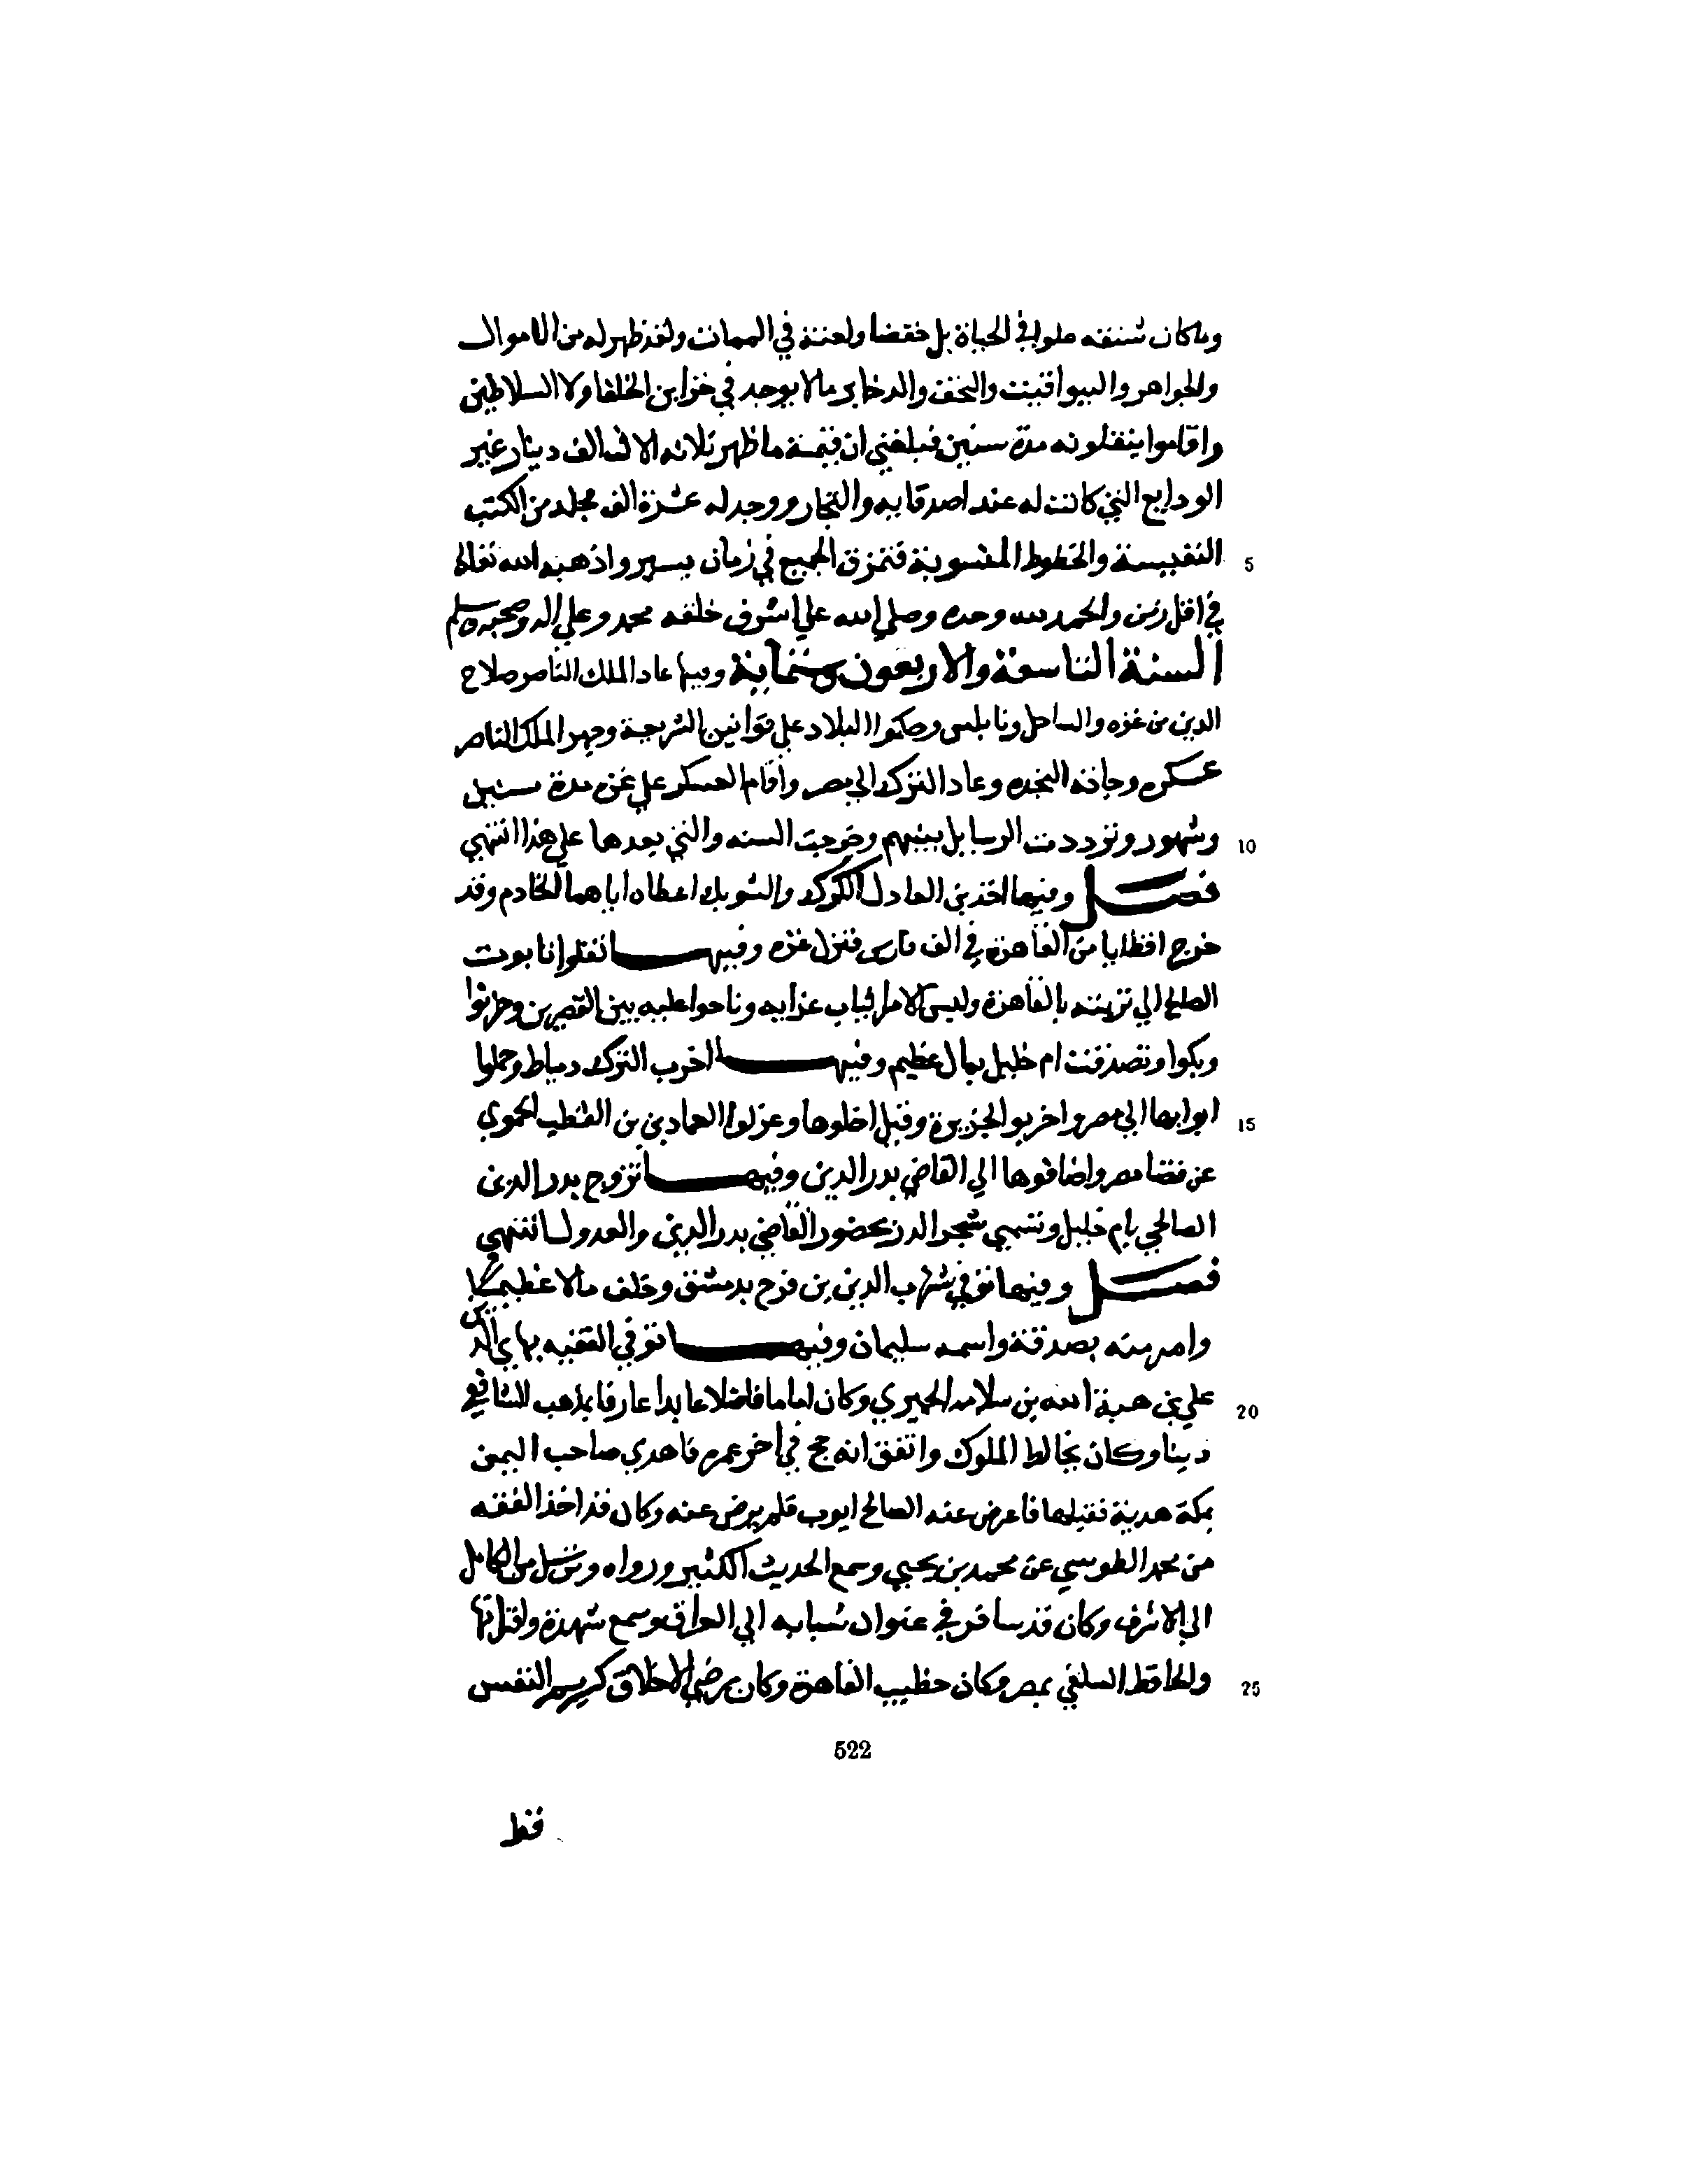 وما كان شنقه علوا في الحياة بل خفضا ولعنة في الممات ولقد ظهر له من الاموال
والجواهر واليواقيت والتحف والدخاير ما لا يوجد في خزاين الخلفا ولا السلاطين
واقاموا ينقلونه مدة سنين فبلغني ان قيمة ما ظهر ثلاثه الاف الف دينار غير
الودايع التي كانت له عند اصدقايه والتجار ووجد له عشرة الف مجلد من الكتب
5 النفيسة والخطوط المنسوبة فتمزق الجميع في زمان يسير واذهبه الله تعالى
في اقل زمن والحمد لله وحده وصلي الله علي اشرف خلقه محمد وعلي اله وصحبه وسلم
السنة التاسعة والاربعون وستماية وفيها عاد الملك الناصر صلاح
الدين من غزه والساحل ونابلس وحكموا البلاد علي قوانين الشريجة وجهز الملك الناصر
عسكره وجاته النجده وعاد الترك الي مصر واقام العسكر علي غزه مدة سنين
10 وشهور وترددت الرسايل بينهم وخرجت السنه والتي بعدها علي هذا انتهي
فصل وفيها اخذ بن العادل الكرك والشوبك اعطاه اياهما الخادم وقد
خرج اقطايا من القاهرة في الف فارس فنزل غزه وفيها نقلوا تابوت
الصالح الي تربته بالقاهرة ولبس الامرا ثياب عزايه وناحوا عليه بين القصرين وحزنوا
وبكوا وتصدقت ام خليل بمال عظيم وفيها اخرب الترك دمياط وحملوا
15 ابوابها الي مصر واخربوا الجزيرة وقيل اخلوها وعزلوا العماد بن بن القطب الحموي
عن قضا مصر واضافوها الي القاضي بدر الدين وفيها تزوج بدر الدين
الصالحي بام خليل وتسمي شجر الدر بحضور القاضي بدر الدين والعدول انتهي
فصل وفيها توفي شهاب الدين بن فرح بدمشق وخلف مالا عظيما
وامر منه بصدقة واسمه سليمان وفيها توفي الفقيه بهاي الدين
20 علي بن هبة الله بن سلامه الحميري وكان اماما فاضلا عابدا عارفا بمذهب الشافعي
دينا وكان يخالط الملوك واتفق انه حج في اخر عمره فاهدي صاحب اليمن
بمكة هدية فقبلها فاعرض عنه الصالح ايوب فلم يرض عنه وكان قد اخذ الفقه
من محمد الطوسي عن محمد بن يحيي وسمع الحديث الكثير ورواه وترسل من الكامل
الي الاشرف وكان قد سافر في عنوان شبابه الي العراق وسمع شهدة واقرانها
25 والحافظ السلفي بمصر وكان خطيب القاهرة وكان مرضي الاخلاق كريم النفس
522
قط